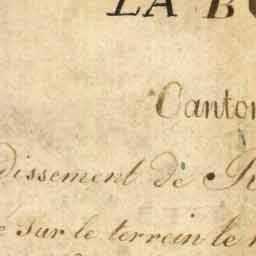 LA B
Canton
dissement de R
sur le terrein le